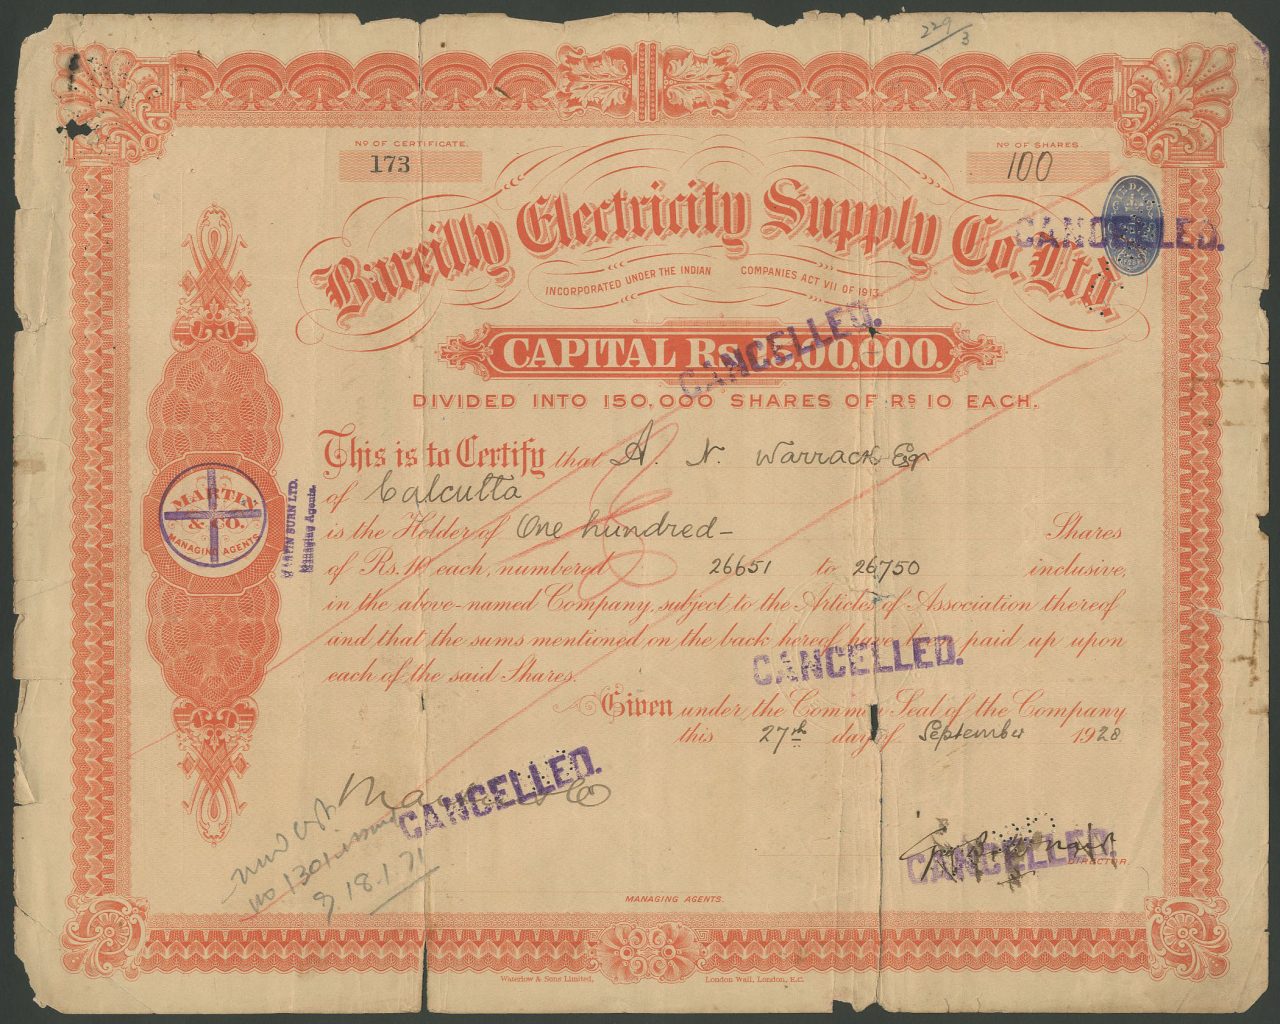 229/3
Nº OF CERTIFICATE.
173
Nº OF SHARES
100
Bareilly Electricity Supply Co. Ltd.
INCORPORATED UNDER THE INDIAN COMPANIES ACT VII OF 1913.
CANCELLED.
CAPITAL Rs. 15,00,000.
CANCELLED.
DIVIDED INTO 150,000 SHARES OF RS 10 EACH.
This is to Certify that A. N. Warrack Esqr
of Calcutta
is the Holder of One hundred – Shares
of Rs. 10 each, numbered 26651 to 26750 inclusive,
in the above-named Company, subject to the Articles of Association thereof
and that the sums mentioned on the back hereof have been paid up upon
each of the said Shares.
MARTIN & CO.
MANAGING AGENTS
MARTIN BURN LTD.
Managing Agents.
CANCELLED.
Given under the Common Seal of the Company
this 27th day of September 1928
CANCELLED.
CANCELLED.
DIRECTOR.
no 1301 issued
18.1.71
MANAGING AGENTS.
Waterlow & Sons Limited, London Wall, London, E.C.